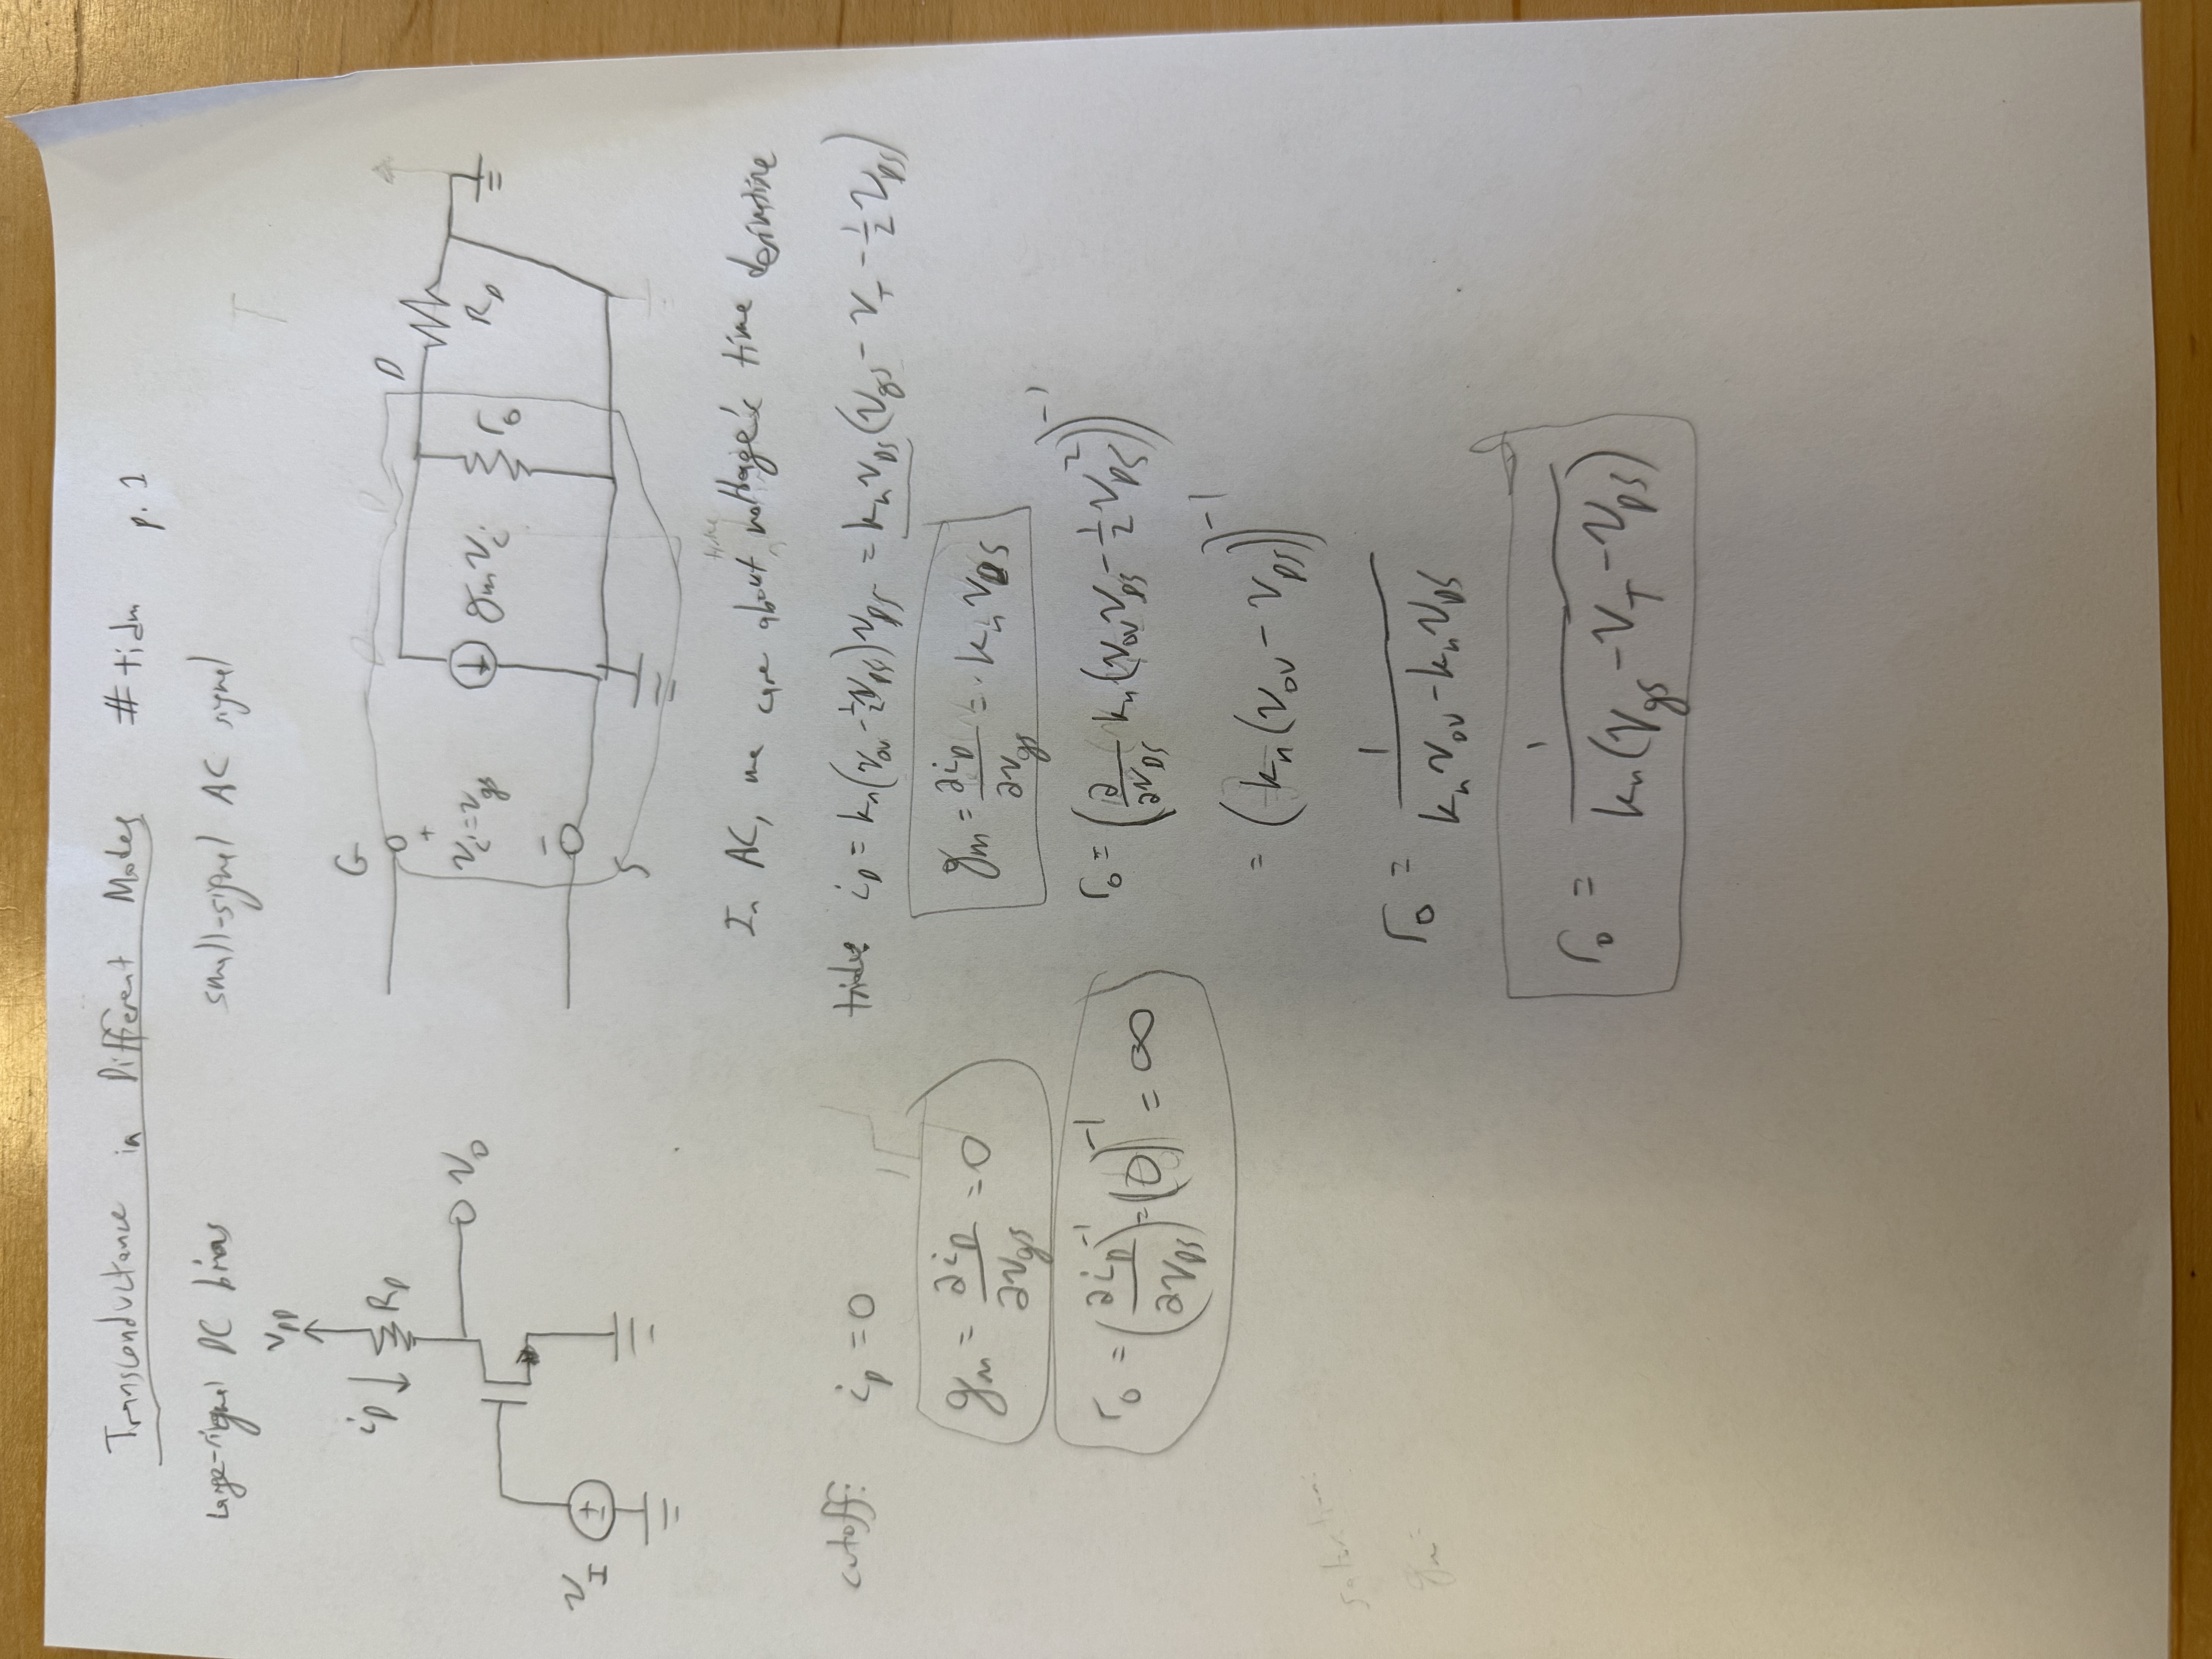 Transconductance in Different Modes #tidm p. 1
Large-signal DC bias
small-signal AC signal
V_DD
i_D ↓ R_D
v_O
v_I
G
+
v_i = v_gs
−
S
g_m v_i
r_o
D
R_D
In AC, we care about voltage's time derivative
cutoff: i_D = 0
g_m = ∂i_D/∂v_gs = 0
r_o = (∂i_D/∂v_DS)^-1 = (0)^-1 = ∞
triode: i_D = k_n(v_ov - 1/2 v_DS)v_DS = k_n v_DS(v_gs - v_T - 1/2 v_DS)
g_m = ∂i_D/∂v_gs = k_n v_DS
r_o = (∂/∂v_DS (k_n(v_ov v_DS - 1/2 v_DS^2)))^-1
= (k_n(v_ov - v_DS))^-1
r_o = 1/(k_n v_ov - k_n v_DS)
r_o = 1/(k_n(v_gs - v_T - v_DS))
saturation:
g_m: